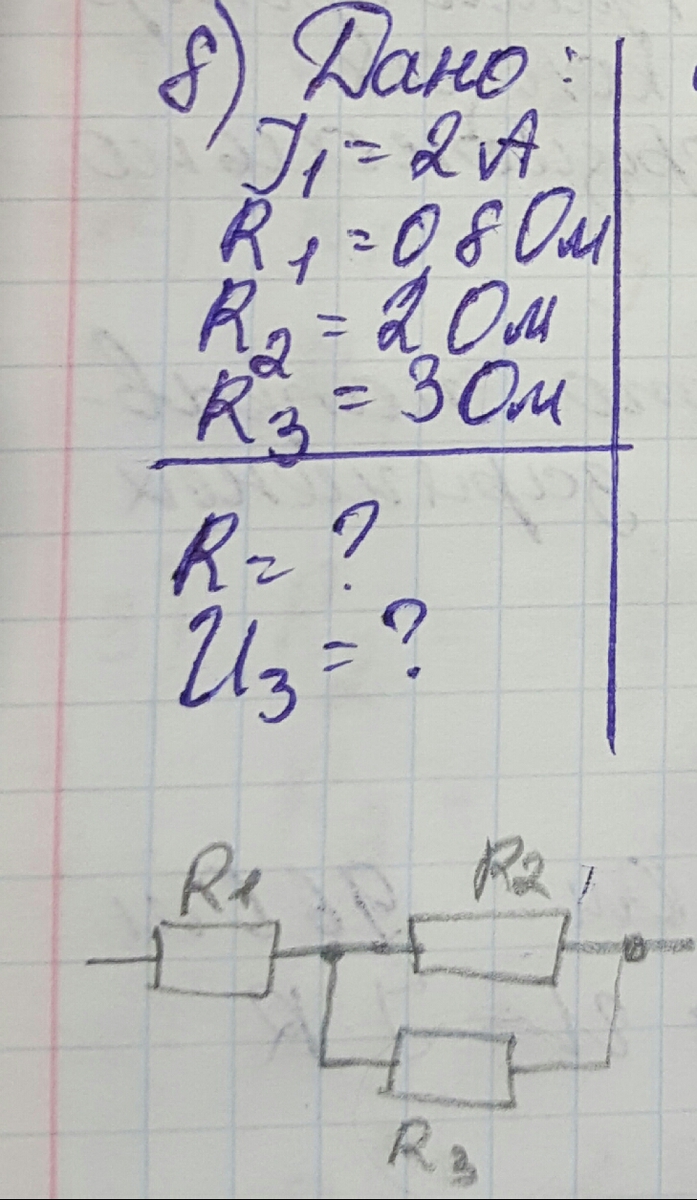 8) Дано:
I₁ = 2 А
R₁ = 0,8 Ом
R₂ = 2 Ом
R₃ = 3 Ом
R = ?
U₃ = ?
R1
R2
R3